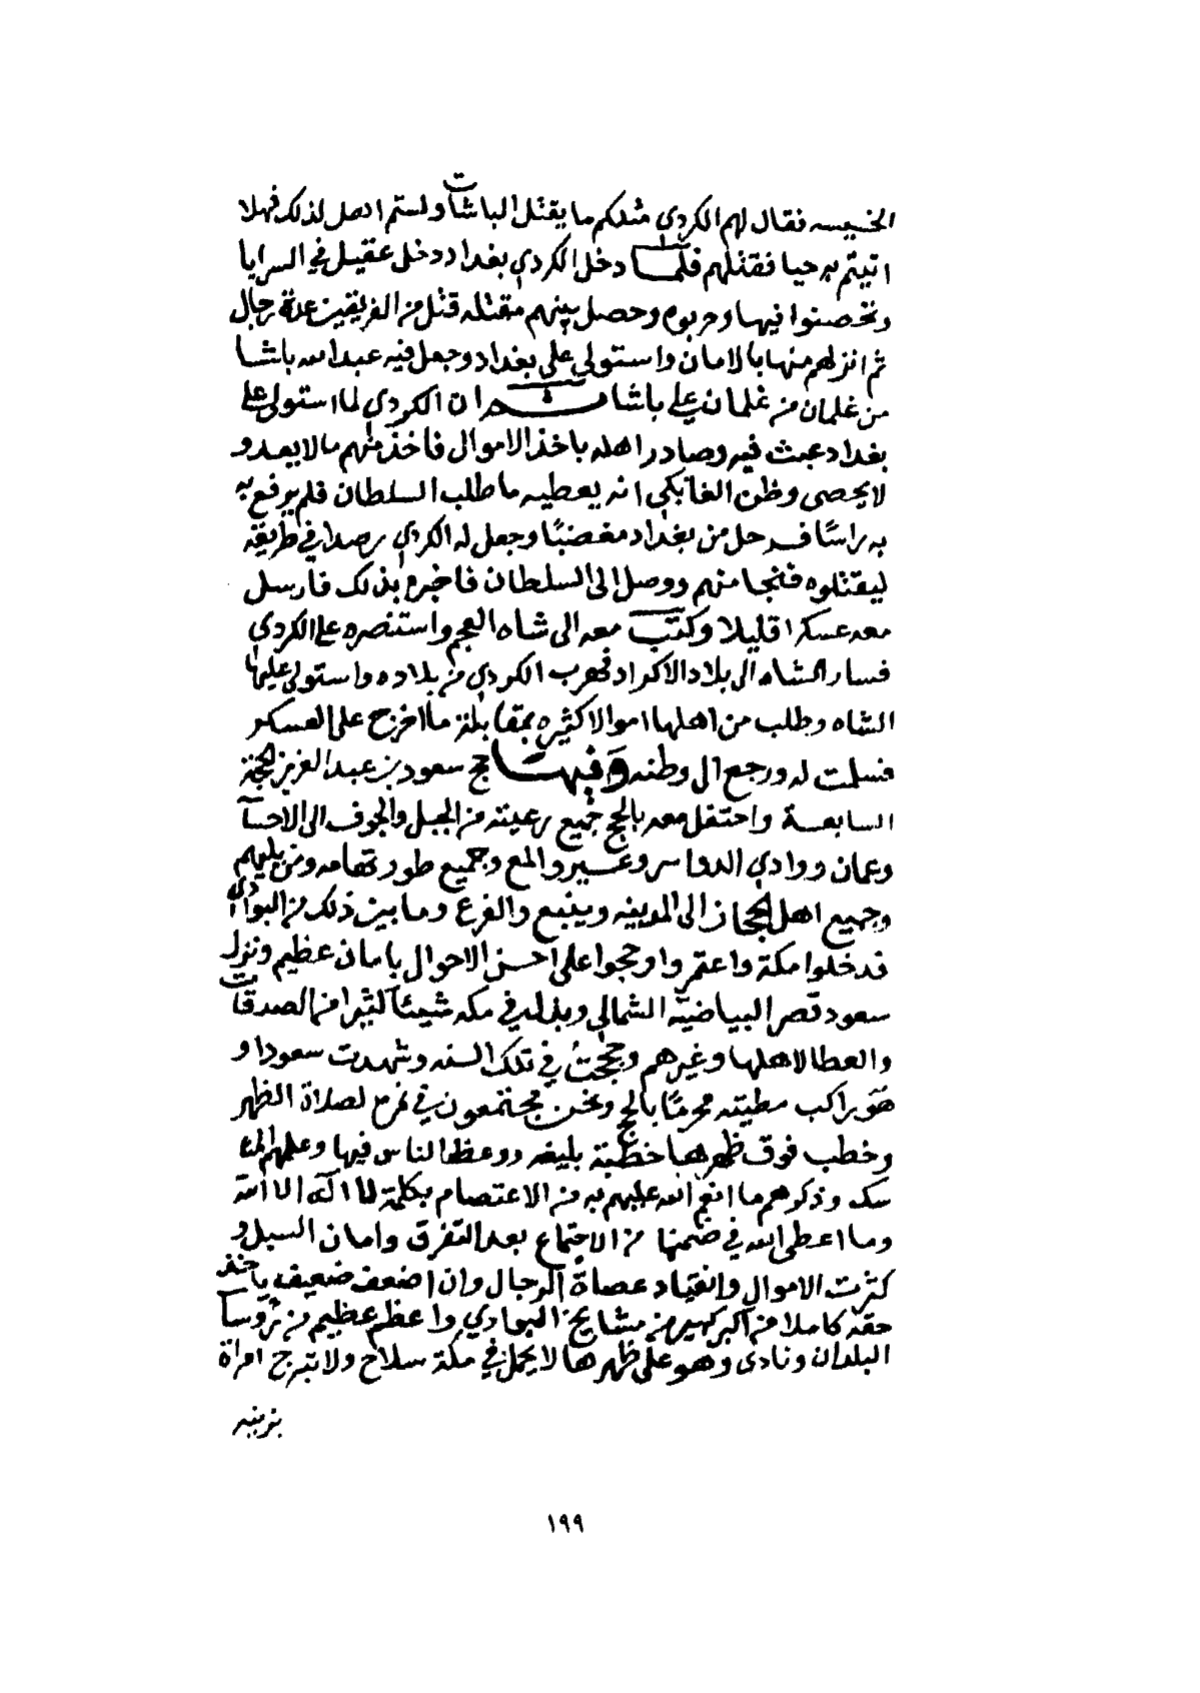 الخسيسه فقال لهم الكردي مثلكم ما يقتل الباشات ولستم اهل لذلك فهلا
اتيتم به حيا فقتلهم فلما دخل الكردي بغداد دخل عقيل في السرايا
وتحصنوا فيها وحربوهم وحصل بينهم مقتله قتل من الفريقين عدة رجال
ثم انزلهم منها بالامان واستولي علي بغداد وجعل فيه عبدالله باشا
من غلمان من غلمان علي باشا ثم ان الكردي لما استولى على
بغداد عبث فيه وصادر اهله باخذ الاموال فاخذ منهم مالا يعد و
لا يحصى وظن القابكي انه يعطيه ما طلب السلطان فلم يرفع به
به راسًا فرحل من بغداد مغضبًا وجعل له الكردي رصدا في طريقه
ليقتلوه فنجا منهم ووصل إلى السلطان فاخبره بذلك فارسل
معه عسكرا قليلا وكتب معه الى شاه العجم واستنصره على الكردي
فسار الشاه الى بلاد الاكراد فهرب الكردي من بلاده واستولى عليها
الشاه وطلب من اهلها اموالا كثيره بمقابلة ما اخرج على العسكر
فسلمت له ورجع الى وطنه وفيها حج سعود بن عبدالعزيز الحجة
السابعة واحتفل معه بالحج جميع رعيته من الجبل والجوف الى الاحسآ
وعمان ووادي الدواسر وعسير والمع وجميع طور تهامه ومن يليهم
وجميع اهل الحجاز الى المدينه وينبع والفرع وما بين ذلك من البوادي
فدخلوا مكة واعتمروا وحجوا على احسن الاحوال بامان عظيم ونزل
سعود قصر البياضية الشمالي وبذل في مكه شيئآ كثيرا من الصدقات
والعطا لاهلها وغيرهم وحججتُ في تلك السنه وشهدت سعودا و
هَوَ راكب مطيته محرمًا بالحج ونحن مجتمعون في نمره لصلاة الظهر
وخطب فوق ظهرها خطبة بليغه ووعظ الناس فيها وعلمهم المنا
سك وذكرهم ما انعم الله عليهم به من الاعتصام بكلمة لا اله الا الله
وما اعطى الله في ضمنها من الاجتماع بعد التفرق وامان السبل و
كثرت الاموال وانقياد عصاة الرجال وان اضعف ضعيف ياخذ
حقه كاملا من اكبر كبير من مشايخ البوادي واعظم عظيم من رُوسآ
البلدان ونادى وهو على ظهرها لا يحمل في مكة سلاح ولا تتبرج امراة
بزينه
١٩٩